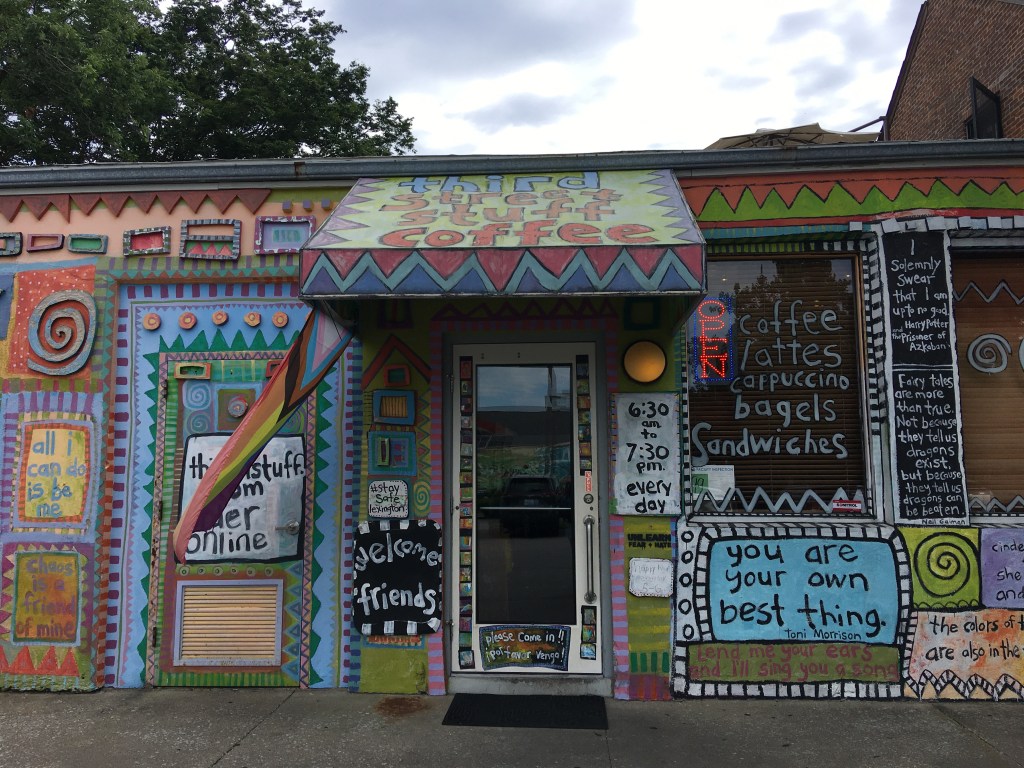 third
street
stuff
coffee
OPEN
coffee
lattes
cappuccino
bagels
Sandwiches
I
Solemnly
Swear
that I am
up to no good.
Harry Potter
and the Prisoner of
Azkaban
Fairy tales
are more
than true.
Not because
they tell us
dragons
exist,
but because
they tell us
dragons can
be beaten.
Neil Gaiman
6:30
am
to
7:30
pm.
every
day
all i
can do
is be
me
stuff.
online
#stay
safe
lexington
welcome
friends
Chaos is a
friend
of mine
UNLEARN
FEAR + HATE
please come in!!
¡por favor venga!
you are
your own
best thing.
Toni Morrison
lend me your ears
and i'll sing you a song
she
and
the colors of
are also in the